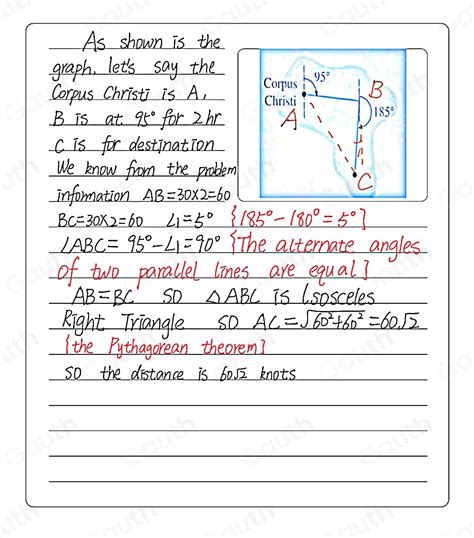 As shown is the
graph, let's say the
Corpus Christi is A,
B is at 95° for 2 hr
C is for destination
We know from the problem
information AB=30×2=60
95°
Corpus
Christi
A
B
185°
C
BC=30×2=60 ∠1=5° {185°-180°=5°}
∠ABC= 95°-∠1=90° {The alternate angles
of two parallel lines are equal}
AB=BC SO △ABC is isosceles
Right Triangle SO AC=√60²+60²=60√2
{the Pythagorean theorem}
SO the distance is 60√2 knots
Gauth